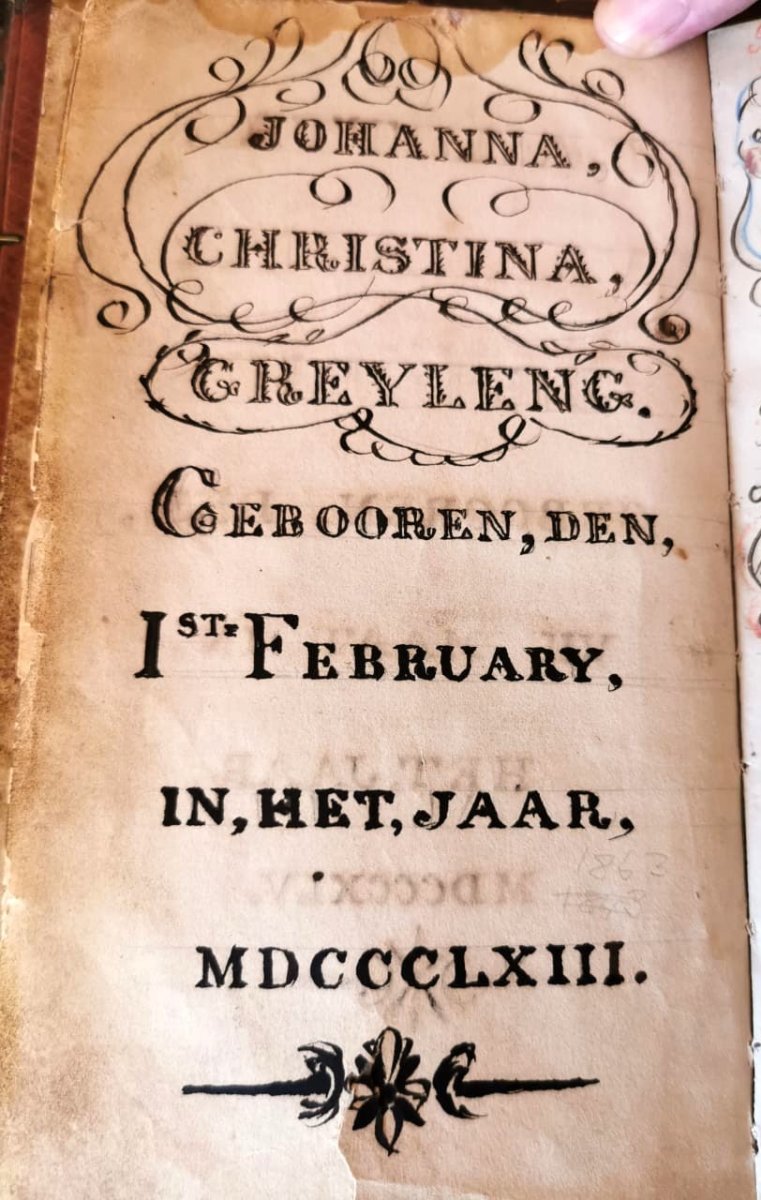 JOHANNA,
CHRISTINA,
GREYLENG.
GEBOOREN, DEN,
1ST= FEBRUARY,
IN, HET, JAAR,
1863
MDCCCLXIII.